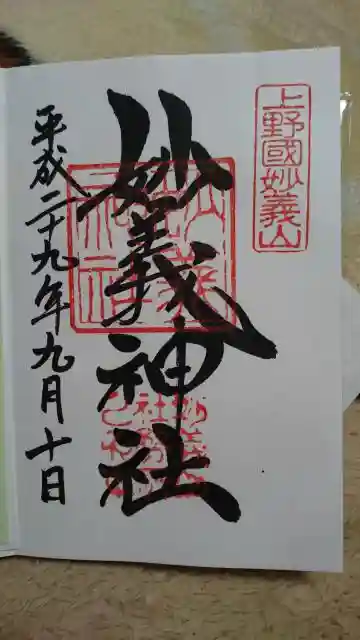 上野國妙義山
妙義神社
平成二十九年九月十日